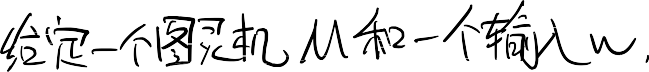 给定一个图灵机M和一个输入w,